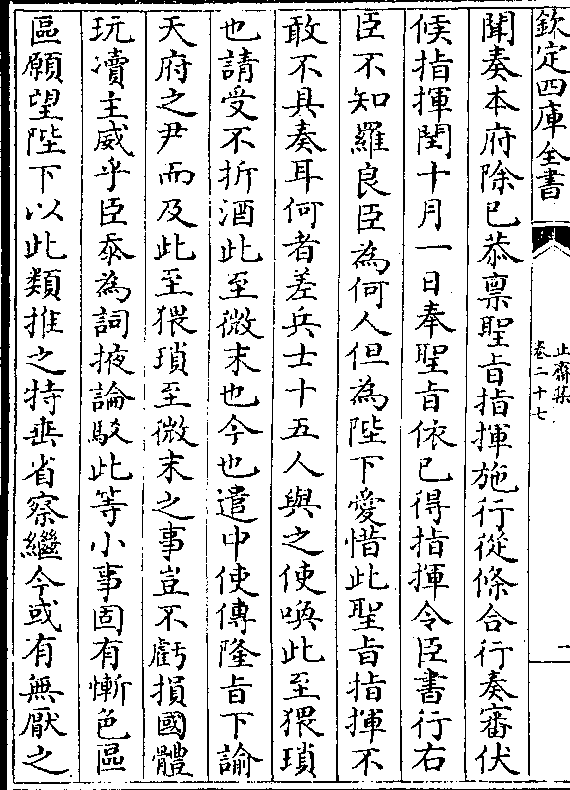 欽定四庫全書
止齋集
卷二十七
一
聞奏本府除已恭禀聖旨指揮施行從條合行奏審伏
候指揮閏十月一日奉聖旨依已得指揮令臣書行右
臣不知羅良臣為何人但為陛下愛惜此聖旨指揮不
敢不具奏耳何者差兵士十五人與之使喚此至猥瑣
也請受不折酒此至微末也今也遣中使傳隆旨下諭
天府之尹而及此至猥瑣至微末之事豈不虧損國體
玩瀆主威乎臣忝為詞掖論駁此等小事固有慚色區
區願望陛下以此類推之特垂省察繼今或有無厭之